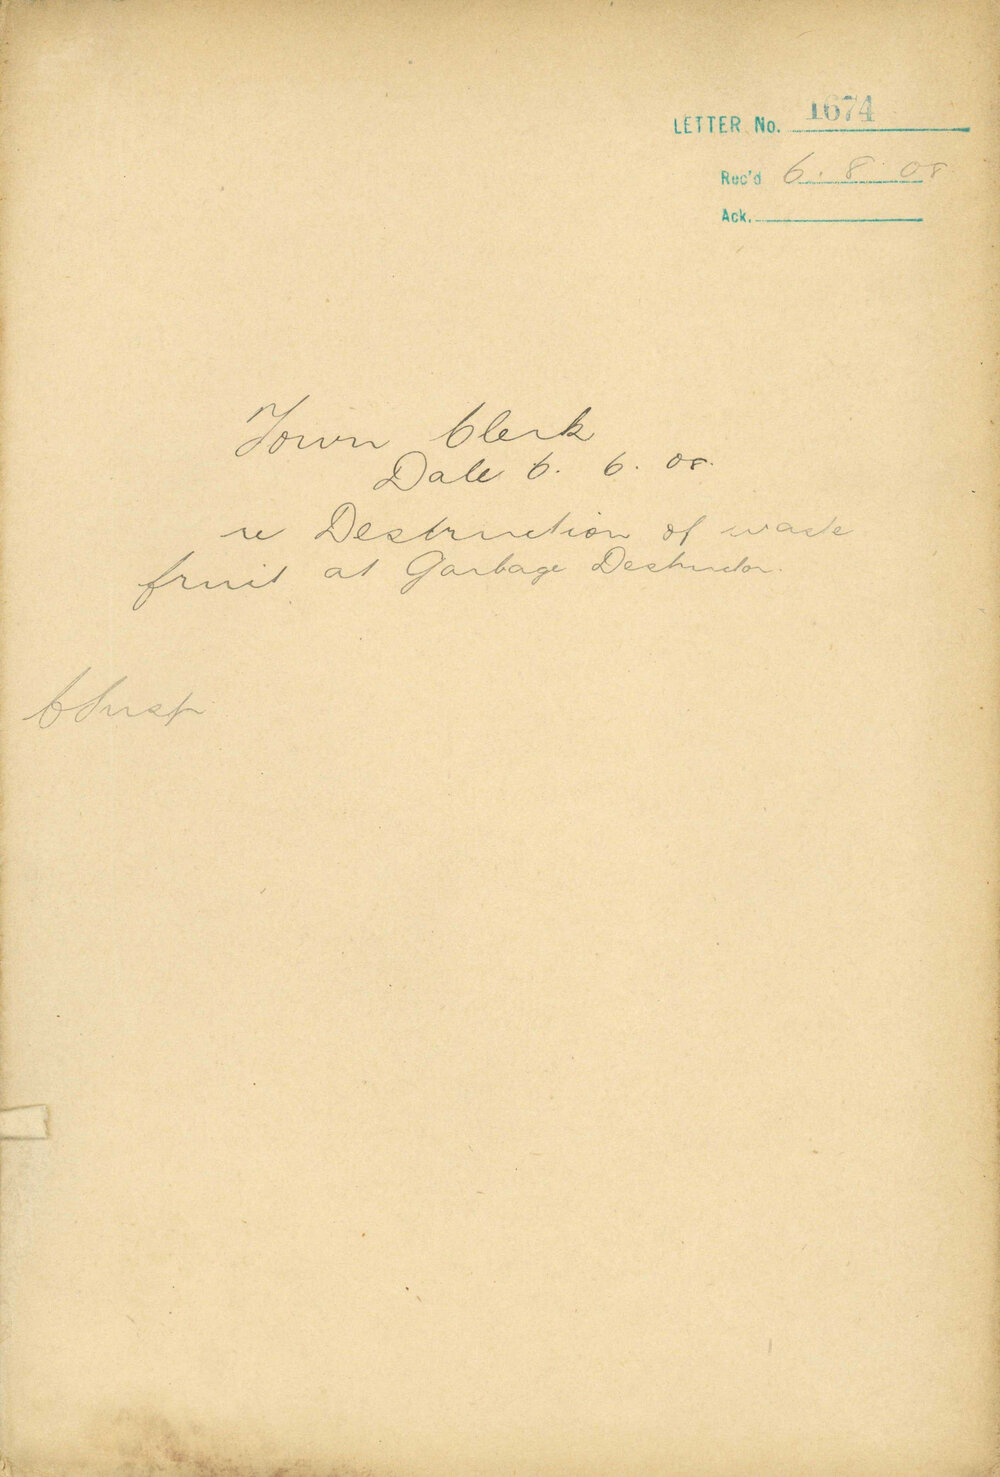 LETTER No. 1674
Rec'd 6. 8. 08
Ack.
Town Clerk
Date 6. 6. 08.
re Destruction of waste
fruit at Garbage Destructor.